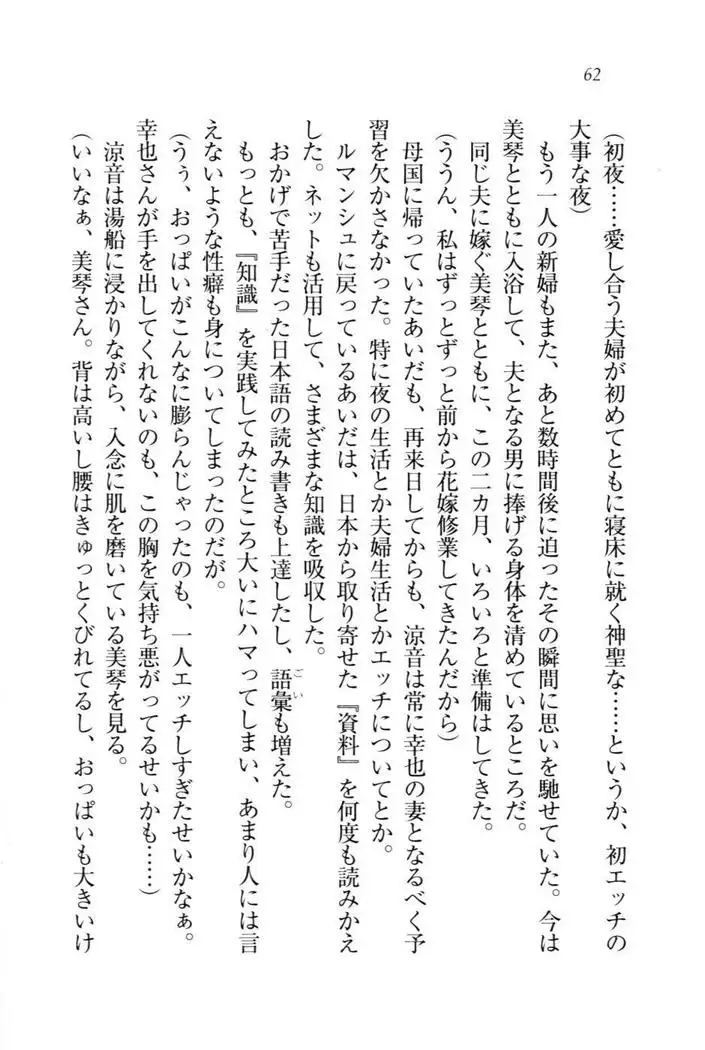 62
(初夜……愛し合う夫婦が初めてともに寝床に就く神聖な……というか、初エッチの
大事な夜)
もう一人の新婦もまた、あと数時間後に迫ったその瞬間に思いを馳せていた。今は
美琴とともに入浴して、夫となる男に捧げる身体を清めているところだ。
同じ夫に嫁ぐ美琴とともに、この二カ月、いろいろと準備はしてきた。
(ううん、私はずっとずっと前から花嫁修業してきたんだから)
母国に帰っていたあいだも、再来日してからも、涼音は常に幸也の妻となるべく予
習を欠かさなかった。特に夜の生活とか夫婦生活とかエッチについてとか。
ルマンシュに戻っているあいだは、日本から取り寄せた『資料』を何度も読みかえ
した。ネットも活用して、さまざまな知識を吸収した。
おかげで苦手だった日本語の読み書きも上達したし、語彙も増えた。
ごい
もっとも、『知識』を実践してみたところ大いにハマってしまい、あまり人には言
えないような性癖も身についてしまったのだが。
(うぅ、おっぱいがこんなに膨らんじゃったのも、一人エッチしすぎたせいかなぁ。
幸也さんが手を出してくれないのも、この胸を気持ち悪がってるせいかも……)
涼音は湯船に浸かりながら、入念に肌を磨いている美琴を見る。
(いいなぁ、美琴さん。背は高いし腰はきゅっとくびれてるし、おっぱいも大きいけ